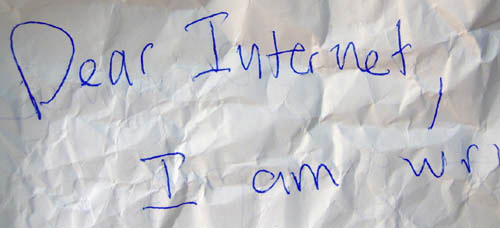 Dear Internet,
I am wri